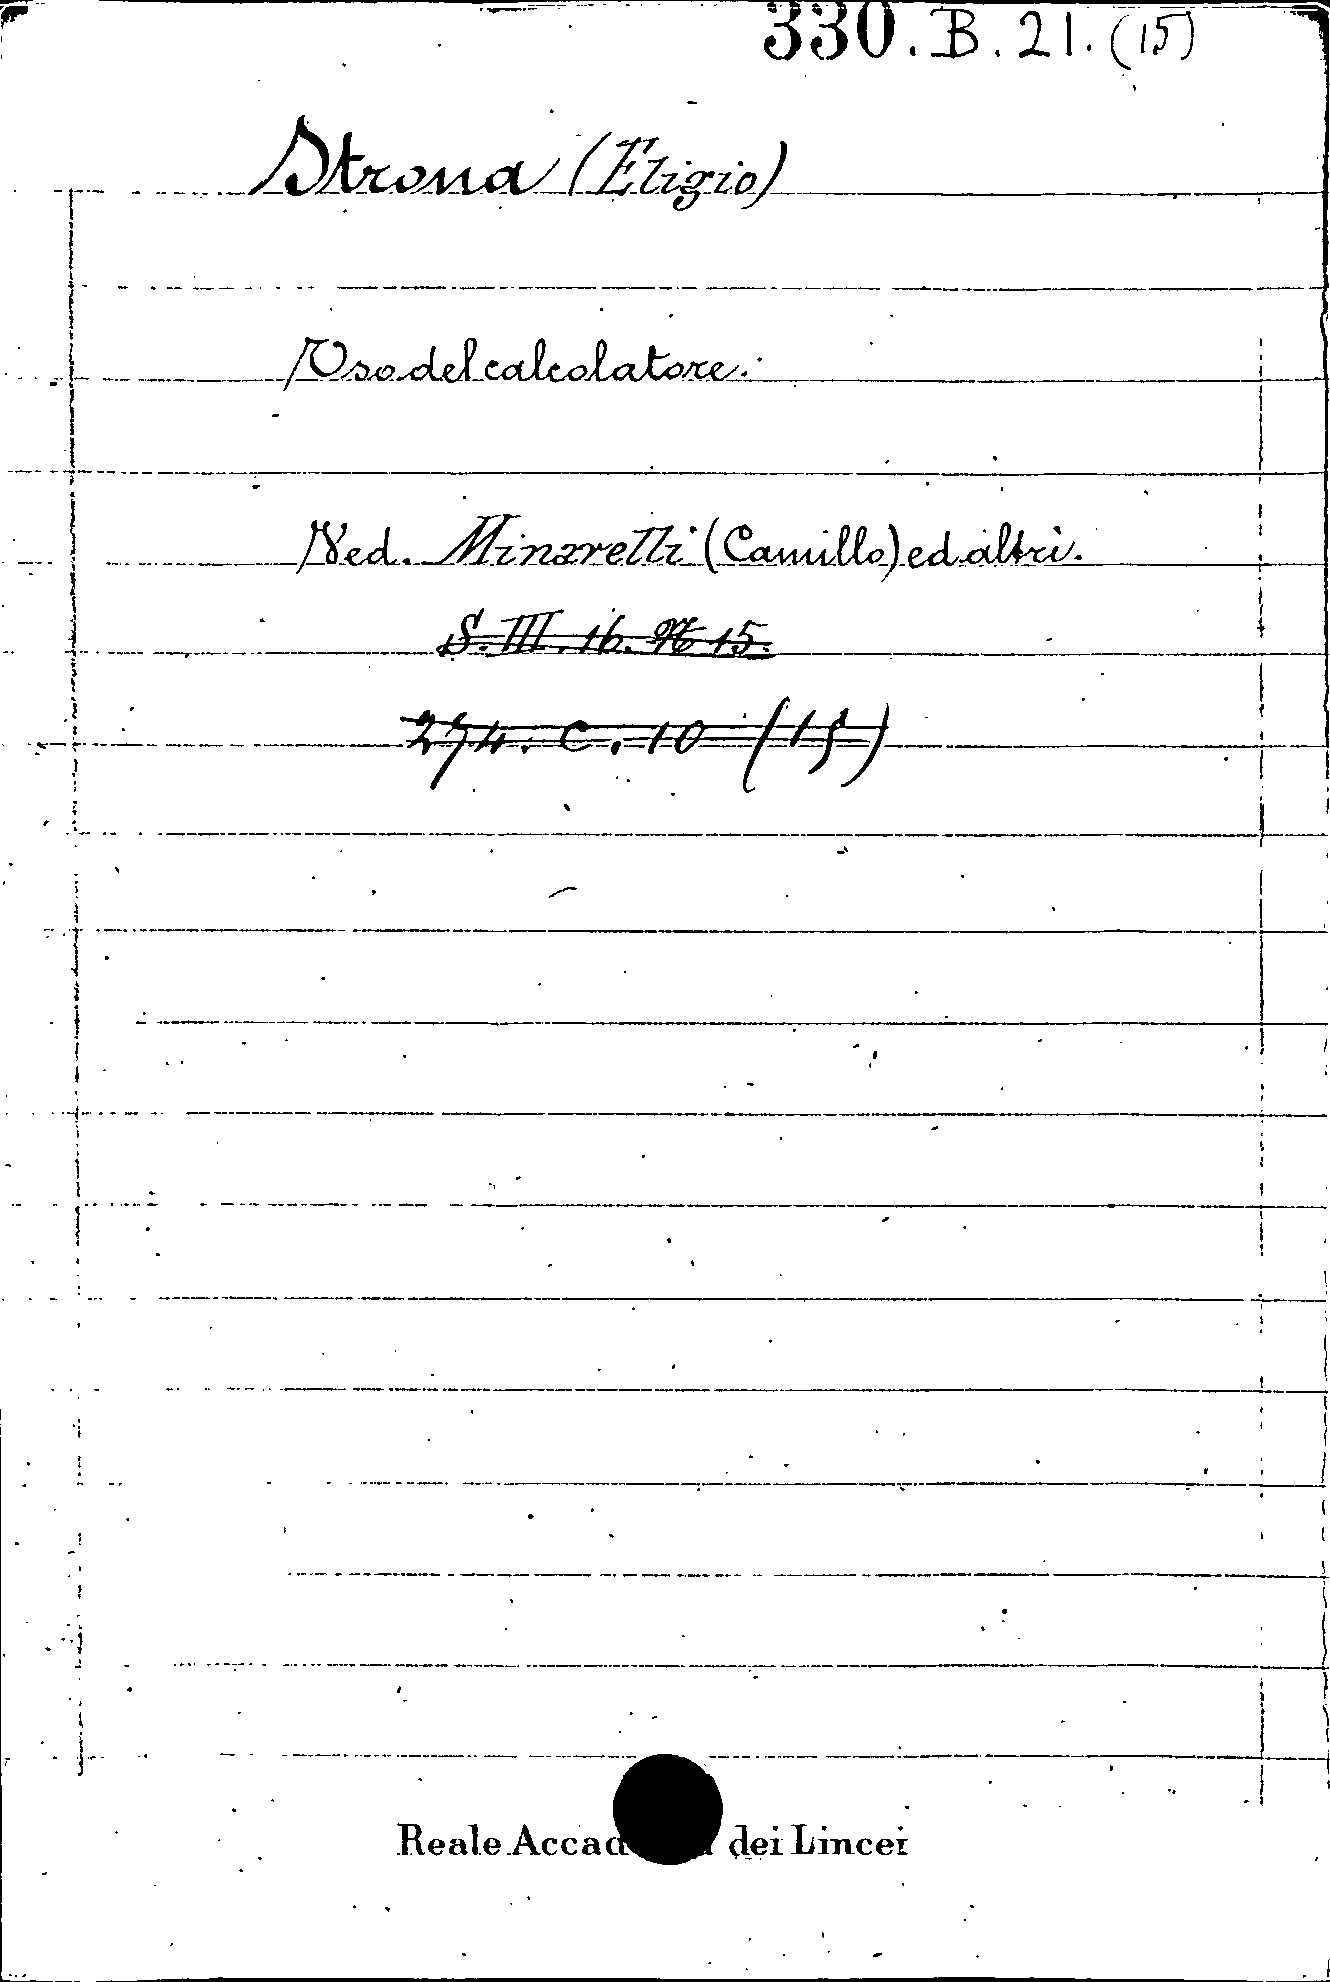 330.B.21.(15)
Strona (Eligio)
Uso del calcolatore.
Ved. Minarelli (Camillo) ed altri.
S. III. 16. N 15.
274. C. 10 (15)
Reale Accad dei Lincei